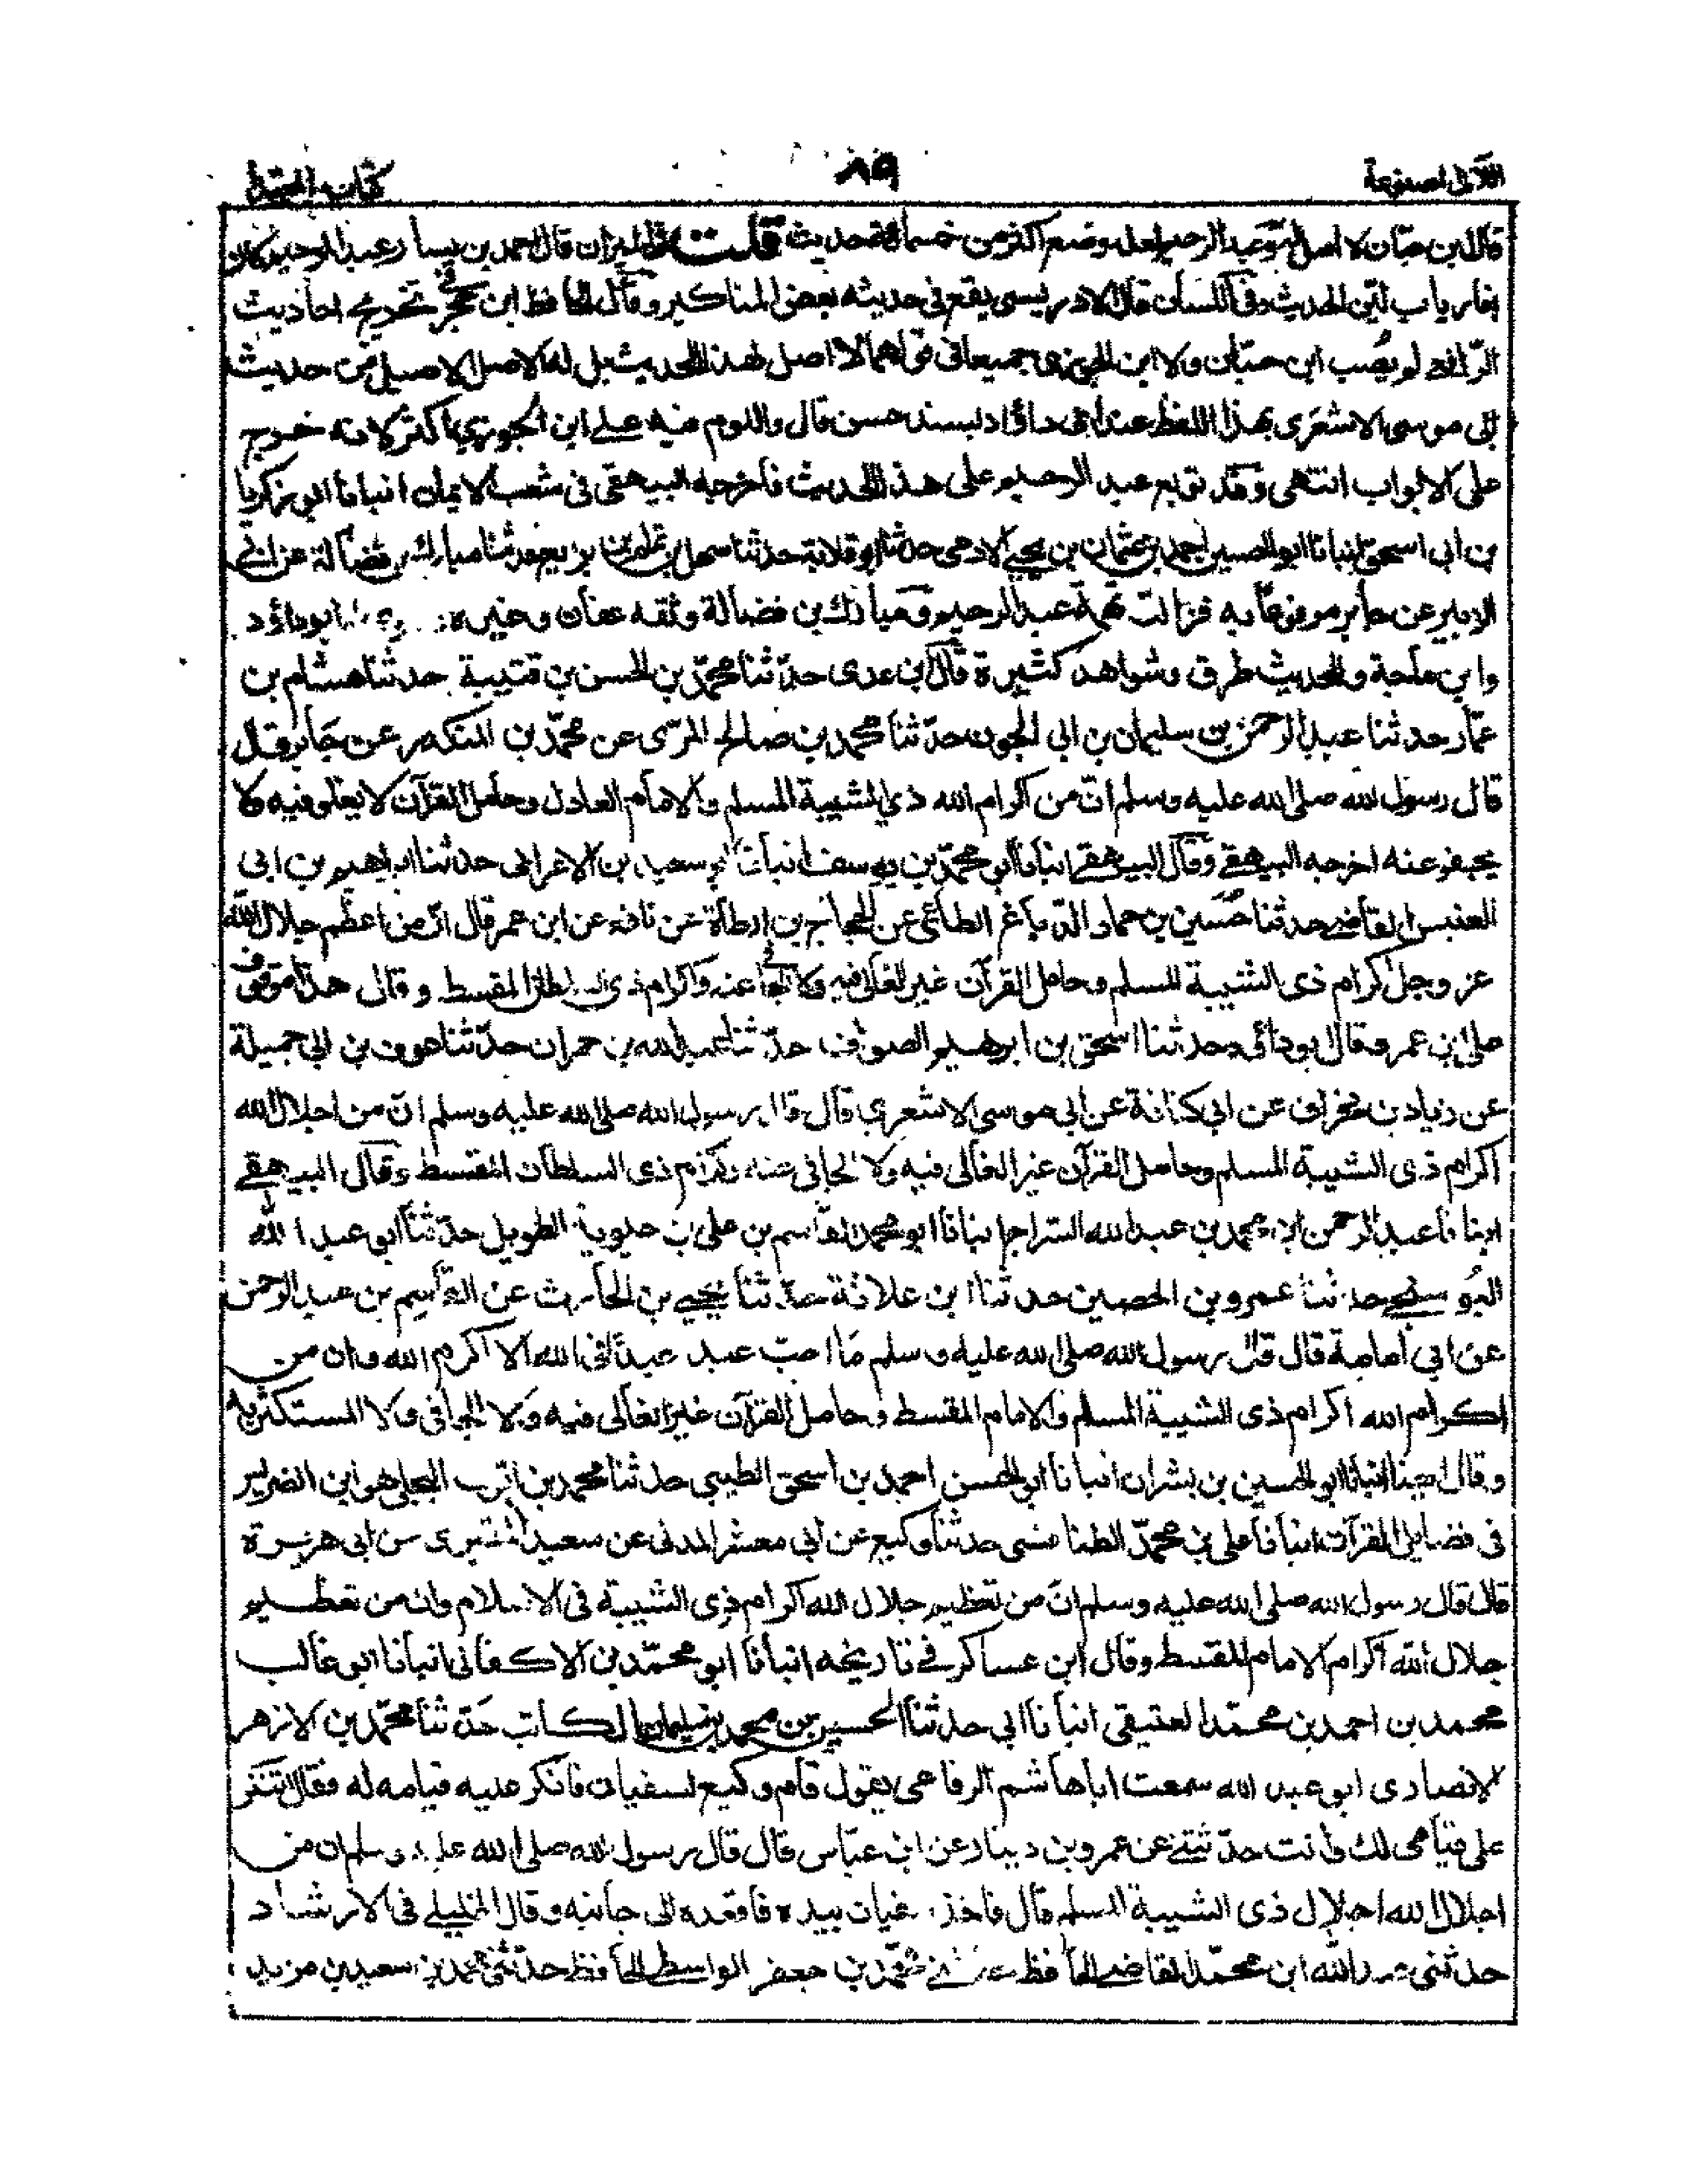 اللآلى المصنوعة ٨٩ كتاب المبتدأ
قال ابن حبان لا اصل له وعبد الرحيم لعله وضع اكثر من خمسمائة حديث قلت فى الميزان قال احمد بن يسار عبد الرحيم كان
بفارياب لين الحديث وفى اللسان قال الادريسى يقع فى حديثه بعض المناكير وقال الحافظ ابن حجر فى تخريج احاديث
الرافعى لم يصب ابن حبان ولا ابن الجوزى جميعا فى قولهما لا اصل لهذا الحديث بل له الاصل الاصيل من حديث
ابى موسى الاشعرى بهذا اللفظ عند ابى داؤد بسند حسن قال واللوم فيه على ابن الجوزى اكثر لانه خرج
على الابواب انتهى وقد توبع عبد الرحيم على هذا الحديث فاخرجه البيهقى فى شعب الايمان انبانا ابو زكريا
بن ابى اسحق انبانا ابو الحسين احمد بن عثمان بن يحيى الادمى حدثنا ابو قلابة حدثنا سهل بن تمام بن بزيع حدثنا مبارك بن فضالة عن ابى
الزبير عن جابر مرفوعا به فزالت تهمة عبد الرحيم ومبارك بن فضالة وثقه عفان وغيره ابو داؤد
وابن ماجة وللحديث طرق وشواهد كثيرة قال ابن عدى حدثنا محمد بن الحسن بن قتيبة حدثنا هشام بن
عمار حدثنا عبد الرحمن بن سليمان بن ابى الجون حدثنا محمد بن صالح المرى عن محمد بن المنكدر عن جابر قال
قال رسول الله صلى الله عليه وسلم ان من اكرام الله ذي الشيبة المسلم والامام العادل وحامل القرآن لا يغلو فيه ولا
يجفو عنه اخرجه البيهقى وقال البيهقى انبانا ابو محمد بن يوسف انبانا ابو سعيد بن الاعرابى حدثنا ابراهيم بن ابى
العنبس القاضى حدثنا حسين بن حماد الدباغ الطائى عن الحجاج بن ارطاة عن نافع عن ابن عمر قال ان من اعظم جلال الله
عز وجل اكرام ذى الشيبة المسلم وحامل القرآن غير الغالى فيه ولا الجافى عنه واكرام ذى السلطان المقسط وقال هذا موقوف
على ابن عمر وقال ابو داؤد حدثنا اسحق بن ابرهيم الصواف حدثنا عبد الله بن حمران حدثنا عوف بن ابى جميلة
عن زياد بن مخراق عن ابى كنانة عن ابى موسى الاشعري قال قال رسول الله صلى الله عليه وسلم ان من اجلال الله
اكرام ذى الشيبة المسلم وحامل القرآن غير الغالى فيه ولا الجافى عنه واكرام ذى السلطان المقسط وقال البيهقى
انبانا عبد الرحمن بن محمد بن عبد الله السراج انبانا ابو محمد القاسم بن على بن حمويه الطويل حدثنا ابو عبد الله
البوسنجى حدثنا عمرو بن الحصين حدثنا ابن علاثة حدثنا يحيى بن الحارث عن القاسم بن عبد الرحمن
عن ابى امامة قال قال رسول الله صلى الله عليه وسلم ما احب عبد عبدا فى الله الا اكرم الله وان من
اكرام الله اكرام ذى الشيبة المسلم والامام المقسط وحامل القرآن غير الغالى فيه ولا الجافى ولا المستكثر به
وقال ايضا انبانا ابو الحسين بن بشران انبانا ابو الحسن احمد بن اسحق الطيبى حدثنا محمد بن ايوب البجلى هو ابن الضريس
فى فضايل القرآن انبانا على بن محمد الطنافسى حدثنا وكيع عن ابى معشر المدنى عن سعيد المقبرى عن ابى هريرة
قال قال رسول الله صلى الله عليه وسلم ان من تعظيم جلال الله اكرام ذى الشيبة فى الاسلام وان من تعظيم
جلال الله اكرام الامام المقسط وقال ابن عساكر فى تاريخه انبانا ابو محمد بن الاكفانى انبانا ابو غالب
محمد بن احمد بن محمد العتيقى انبانا ابى حدثنا الحسين بن محمد بن سليمان الكاتب حدثنا محمد بن الازهر
الانصارى ابو عبد الله سمعت ابا هاشم الرفاعى يقول قام وكيع لسفيان فانكر عليه قيامه له فقال اتنكر
على قيامى لك وانت حدثتنى عن عمرو بن دينار عن ابن عباس قال قال رسول الله صلى الله عليه وسلم ان من
اجلال الله اجلال ذى الشيبة المسلم قال فاخذ سفيان بيده فاقعده الى جانبه وقال الخليلى فى الارشاد
حدثنى عبد الله ابن محمد القاضى الحافظ حدثنى محمد بن جعفر الواسطى الحافظ حدثنى محمد بن سعيد بن مزيد